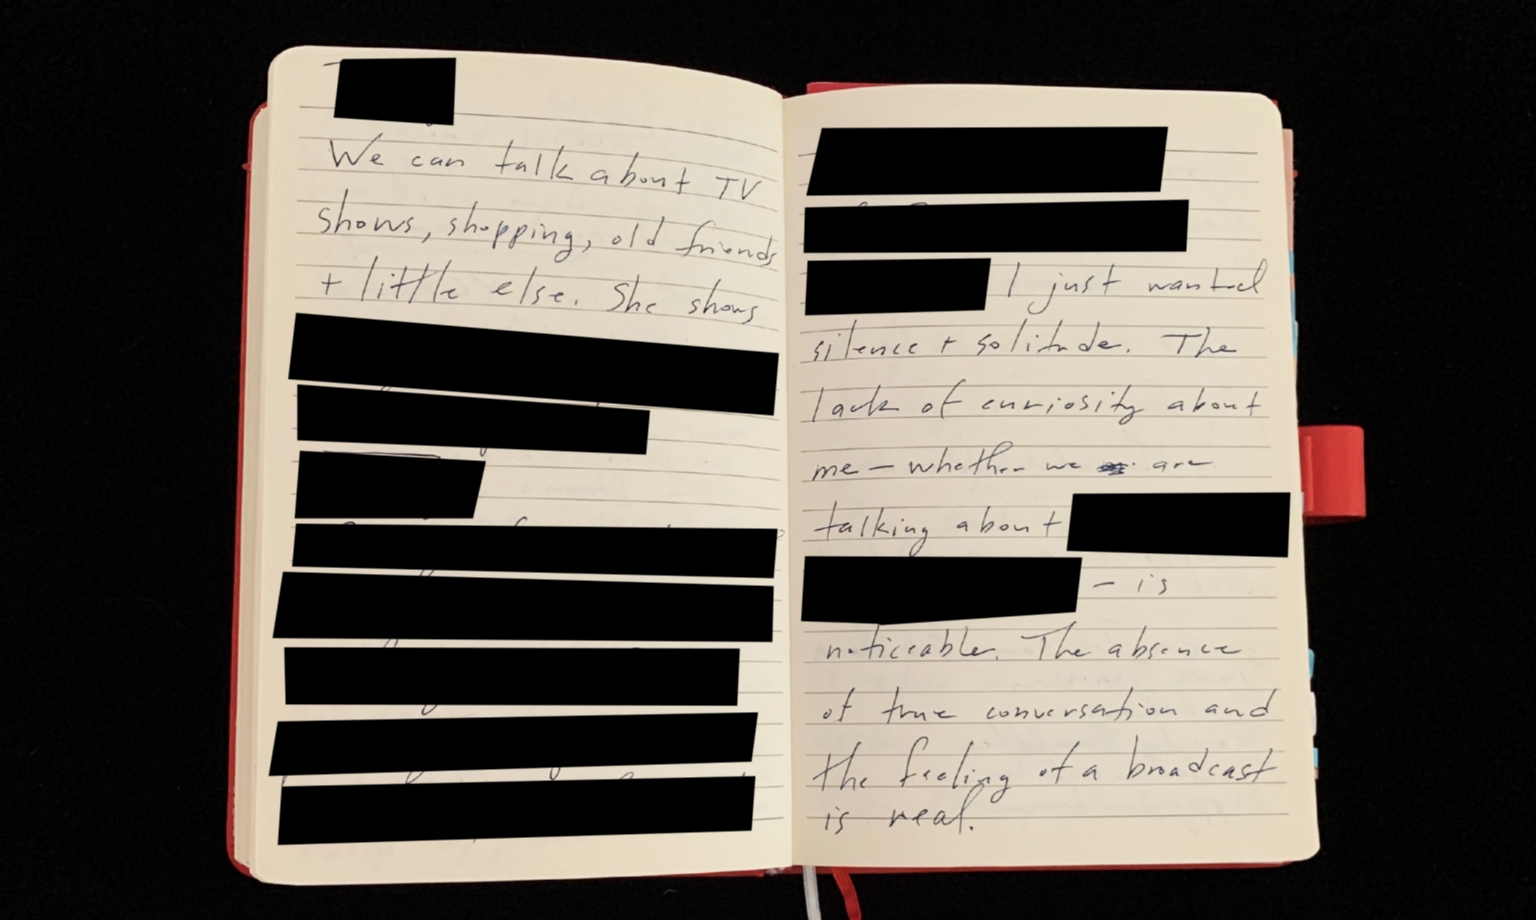 We can talk about TV
shows, shopping, old friends
+ little else. She shows
I just wanted
silence + solitude. The
lack of curiosity about
me — whether we are
talking about
— is
noticeable. The absence
of true conversation and
the feeling of a broadcast
is real.